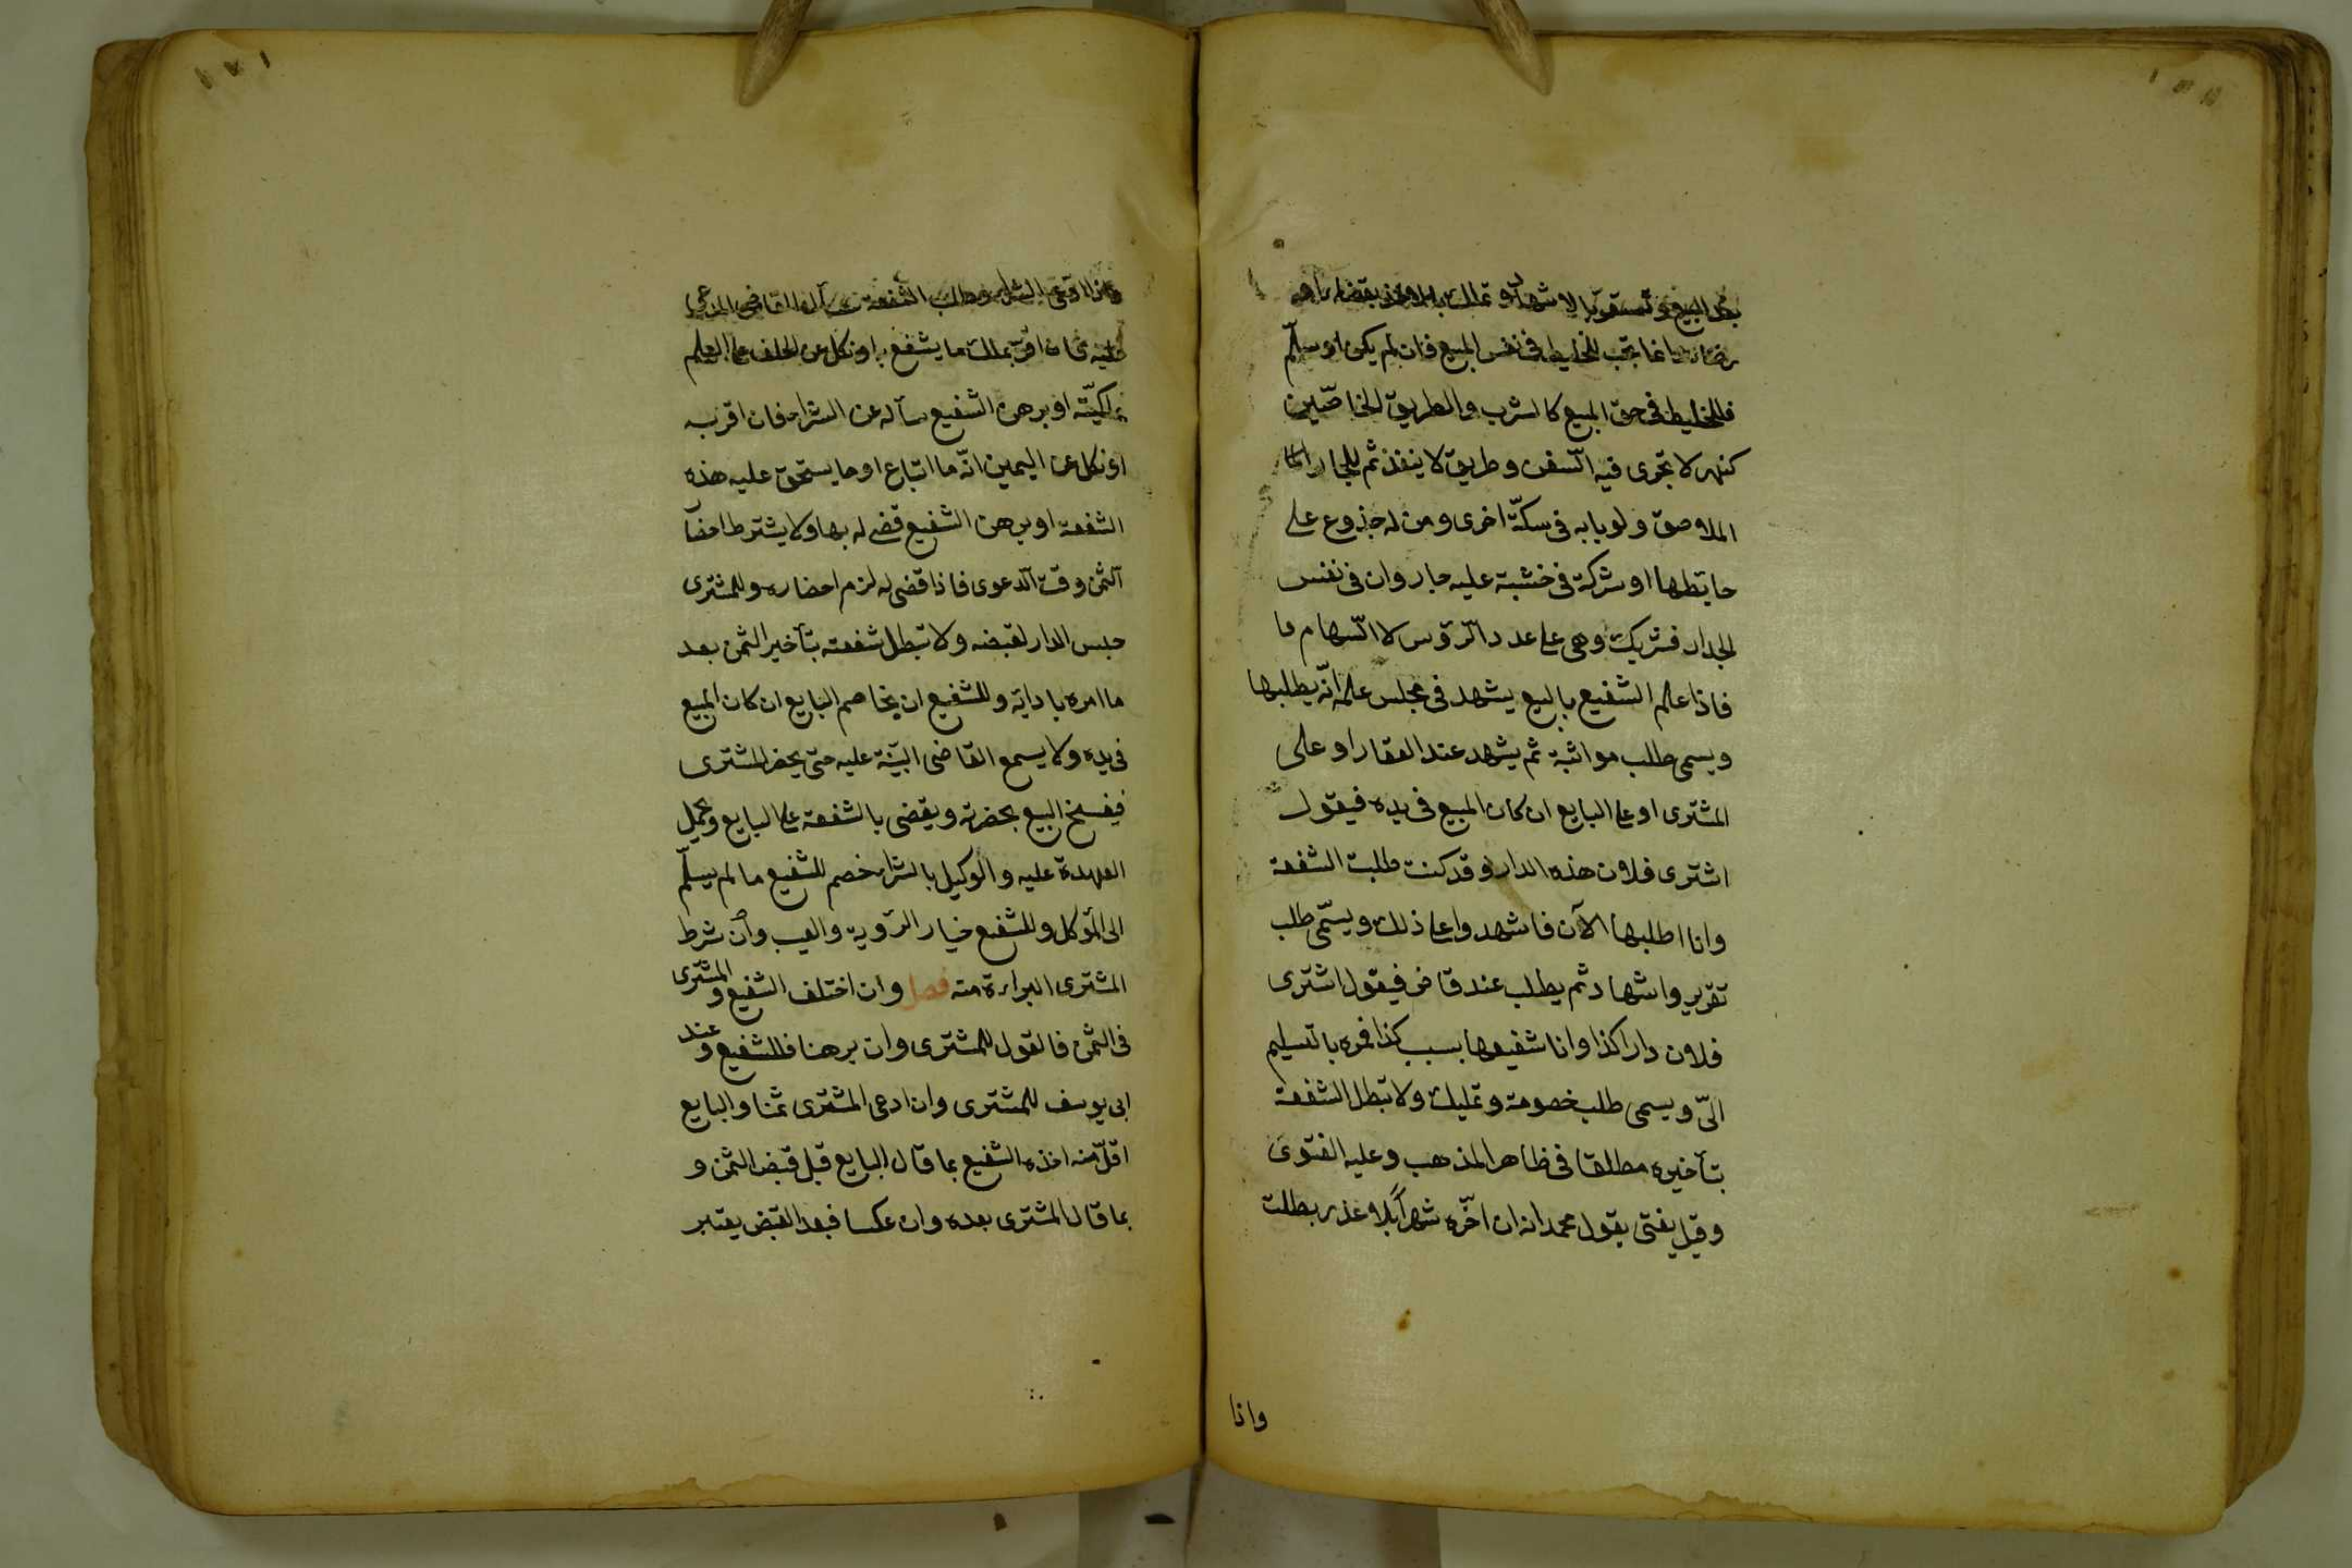 بعد البيع وتستقر بالاشهاد وتملك بالاخذ بقضاء او
رضاء وانما تجب للخليط فى نفس المبيع فان لم يكن او سلّم
فللخليط فى حق المبيع كالشرب والطريق الخاصّين
كنهر لا تجرى فيه السّفن وطريق لا ينفذ ثم للجار
الملاصق ولو بابه فى سكّة اخرى ومن له جذوع على
حايطها او شركة فى خشبة عليه جار وان فى نفس
الجدار فشريك وهى على عدد الرّؤس لا السّهام
فاذا علم الشفيع بالبيع يشهد فى مجلس علمه انّه يطلبها
ويسمى طلب مواثبة ثم يشهد عند العقار او على
المشترى او على البايع ان كان المبيع فى يده فيقول
اشترى فلان هذه الدار وقد كنت طلبت الشفعة
وانا اطلبها الآن فاشهدوا على ذلك ويسمّى طلب
تقرير واشهاد ثم يطلب عند قاض فيقول اشترى
فلان دارا كذا وانا شفيعها بسبب كذا فمره بالتسليم
الىّ ويسمى طلب خصومة وتمليك ولا تبطل الشفعة
بتأخيره مطلقا فى ظاهر المذهب وعليه الفتوى
وقيل يفتى بقول محمد انه ان اخّره شهرا بلا عذر بطلت
واذا
واذا ادعى الشراء وطلب الشفعة سأل القاضى المدعى
عليه فان اقرّ بملك ما يشفع به او نكل عن الحلف على العلم
بمالكيّته او برهن الشفيع سأله عن الشراء فان اقر به
او نكل عن اليمين انّه ما ابتاع او ما يستحق عليه هذه
الشفعة او برهن الشفيع قضى له بها ولا يشترط احضار
الثمن وقت الدعوى فاذا قضى له لزم احضاره وللمشترى
حبس الدار لقبضه ولا تبطل شفعته بتأخير الثمن بعد
ما امره بادايه وللشفيع ان يخاصم البايع ان كان المبيع
فى يده ولا يسمع القاضى البيّنة عليه حتى يحضر المشترى
فيفسخ البيع بحضرته ويقضى بالشفعة على البايع ويجعل
العهدة عليه والوكيل بالشراء خصم للشفيع ما لم يسلّم
الى الموكل وللشفيع خيار الرّوية والعيب وان شرط
المشترى البراءة منه فصل وان اختلف الشفيع والمشترى
فى الثمن فالقول للمشترى وان برهنا فللشفيع وعند
ابى يوسف للمشترى وان ادعى المشترى ثمنا والبايع
اقلّ منه اخذه الشفيع بما قال البايع قبل قبض الثمن و
بما قال المشترى بعده وان عكسا فبعد القبض يعتبر